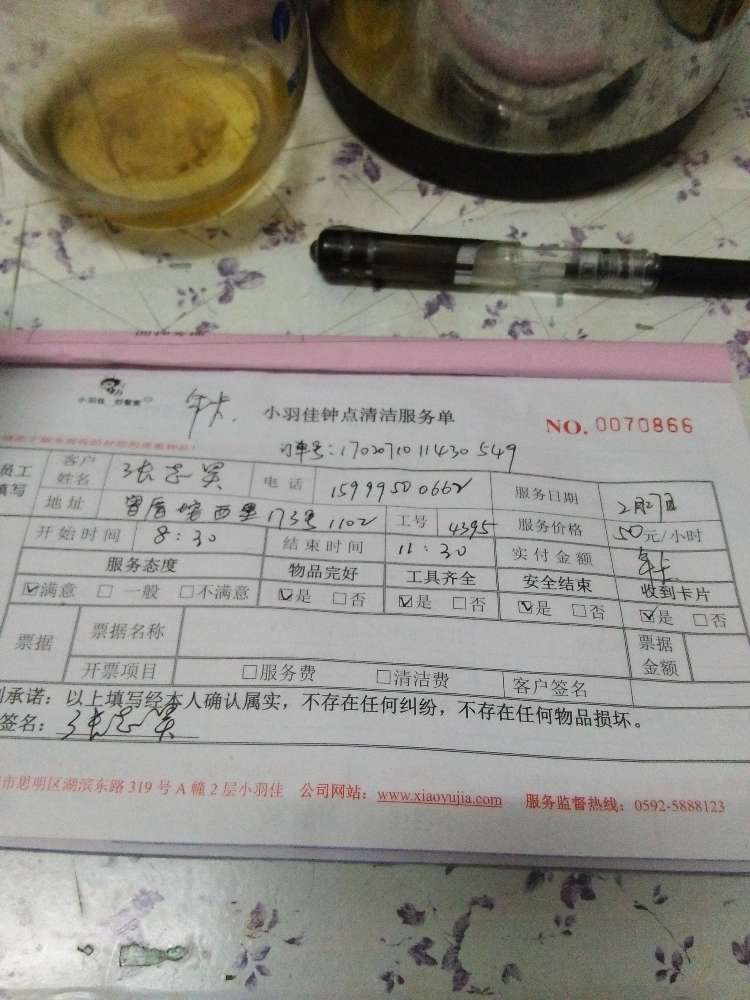 小羽佳 好管家
年卡.
小羽佳钟点清洁服务单
NO. 0070866
订单号:1702071011430549
员工填写 客户姓名 张志昊 电话 15999500662 服务日期 2月27日
地址 西里173号1102 工号 4395 服务价格 50元/小时
开始时间 8:30 结束时间 11:30 实付金额 年卡
服务态度 物品完好 工具齐全 安全结束 收到卡片
☑满意 □一般 □不满意 ☑是 □否 ☑是 □否 ☑是 □否 ☑是 □否
票据 票据名称 票据金额
开票项目 □服务费 □清洁费 客户签名
承诺:以上填写经本人确认属实,不存在任何纠纷,不存在任何物品损坏。
签名:
市思明区湖滨东路319号A幢2层小羽佳 公司网站:www.xiaoyujia.com 服务监督热线:0592-5888123